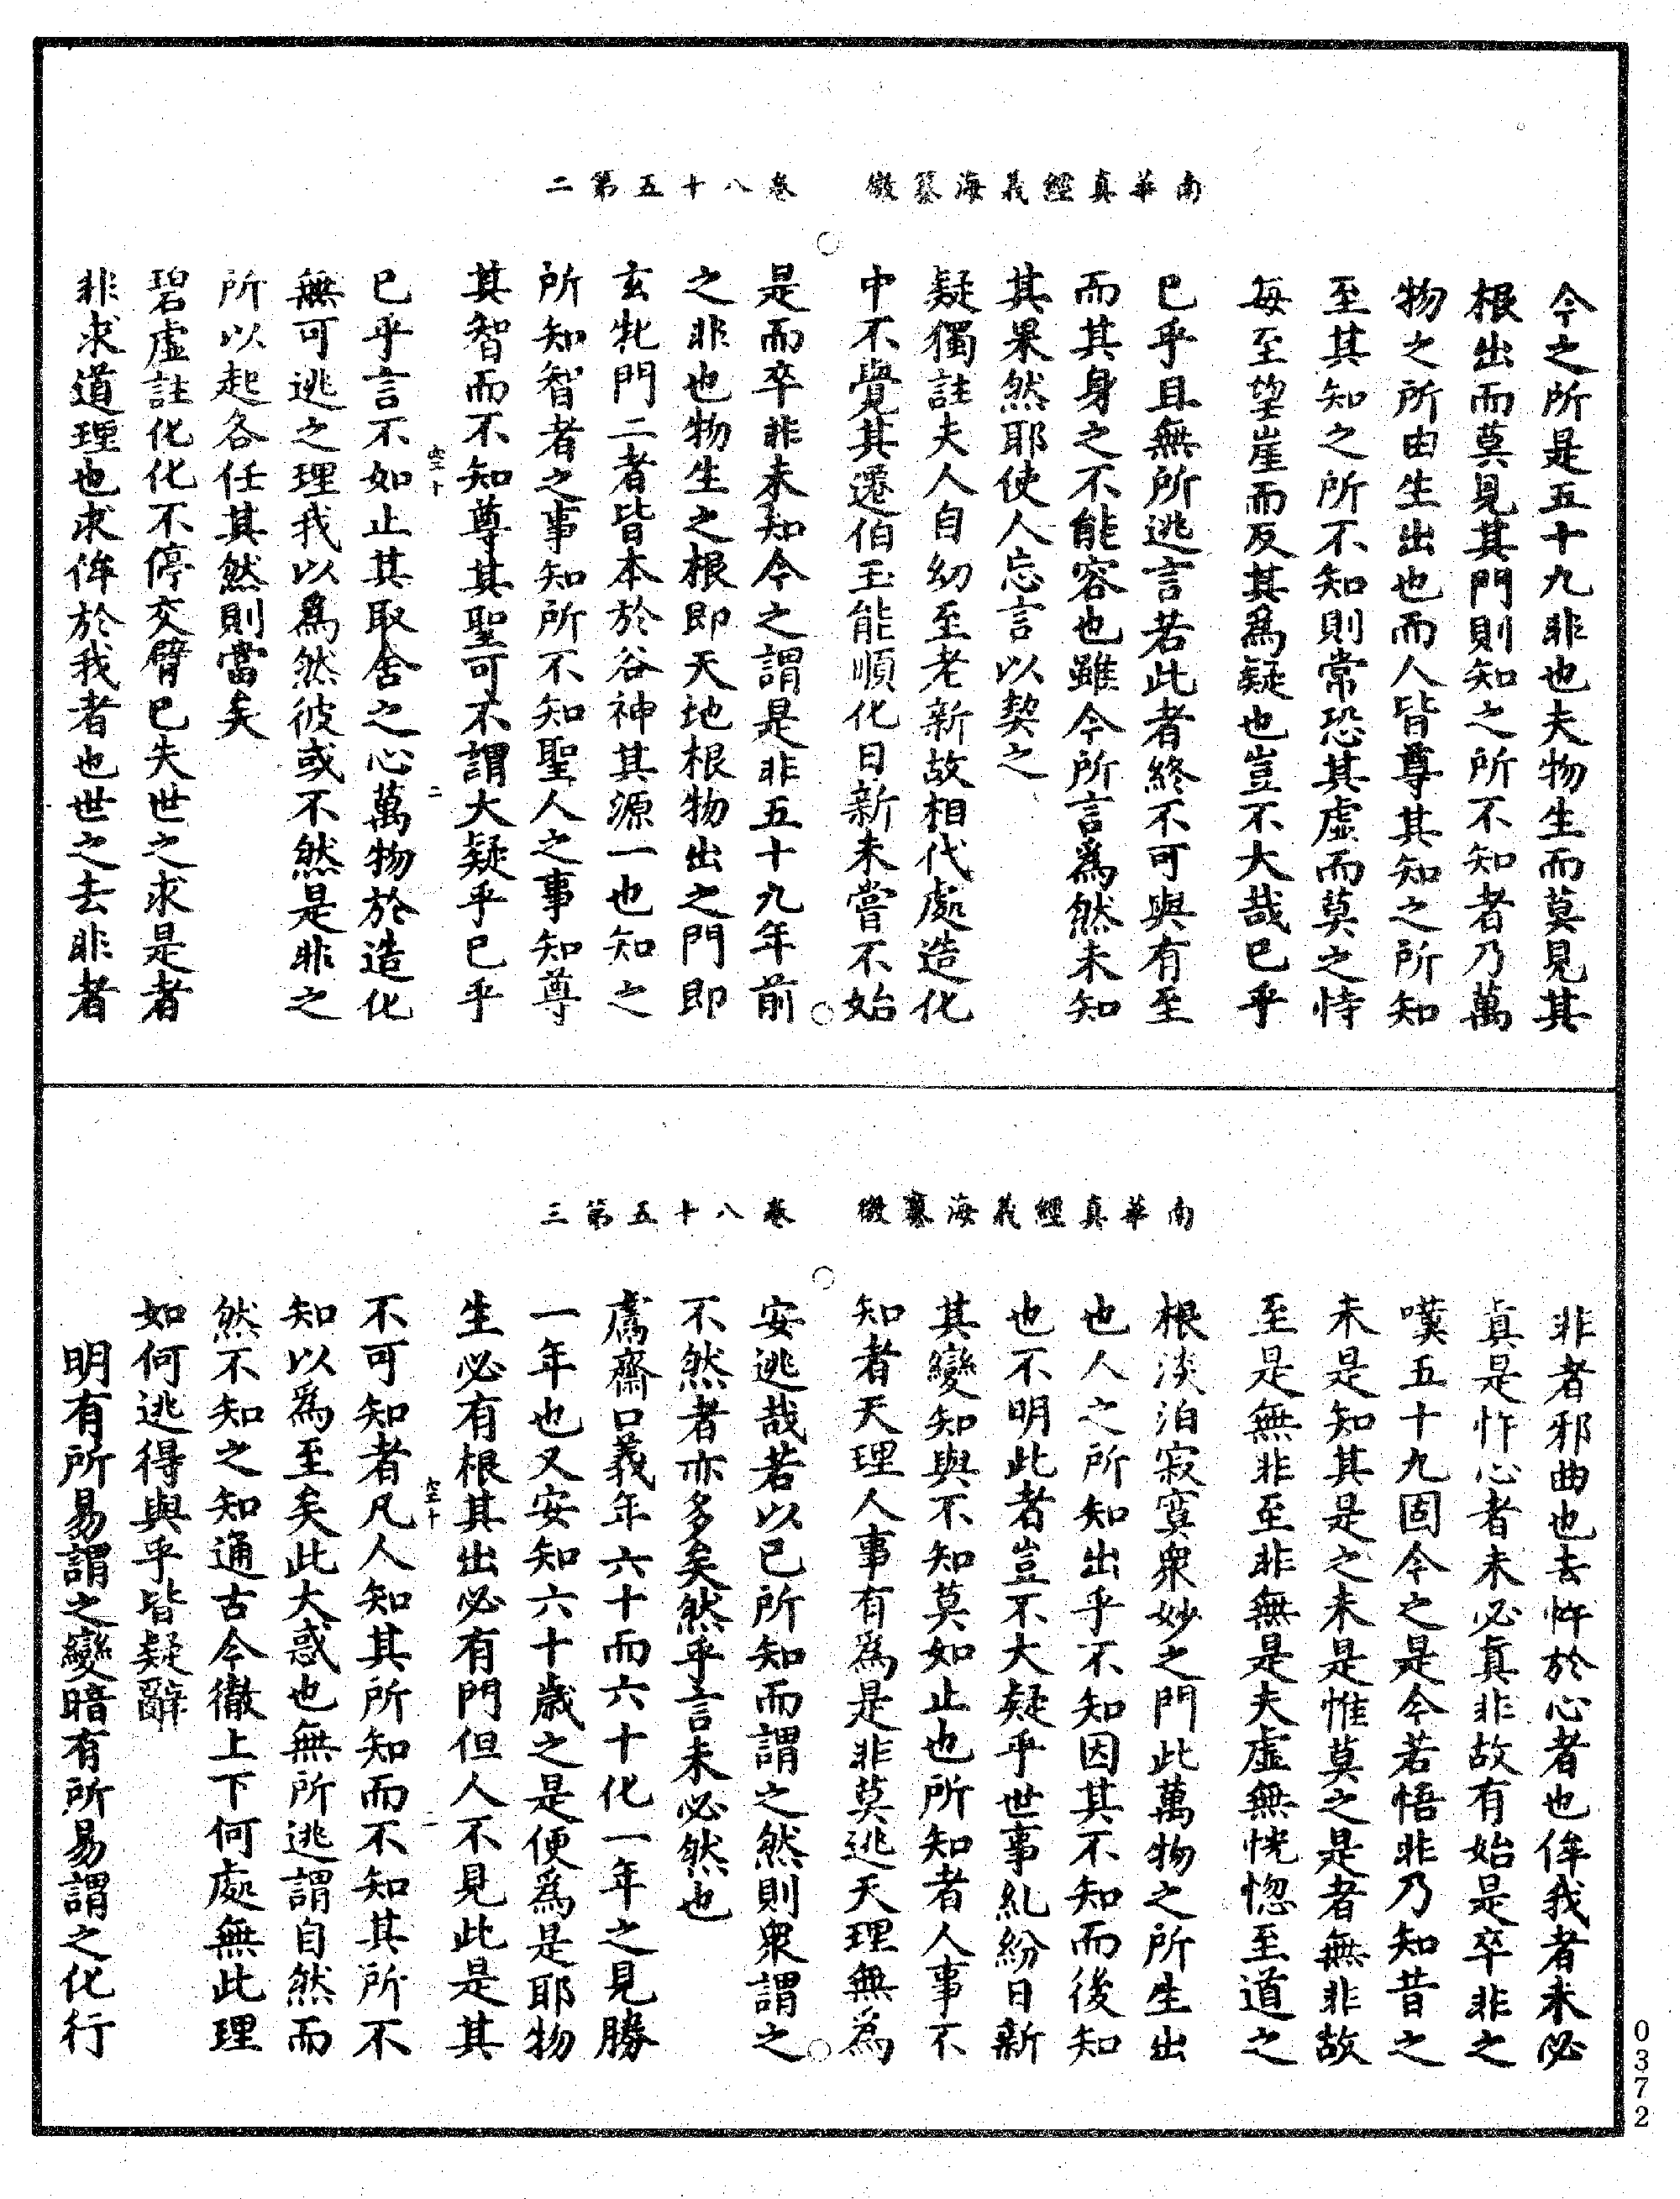 南華真經義海纂微　卷八十五第二
今之所是五十九非也夫物生而莫見其
根出而莫見其門則知之所不知者乃萬
物之所由生出也而人皆尊其知之所知
至其知之所不知則常恐其虛而莫之恃
每至望崖而反其為疑也豈不大哉已乎
已乎且無所逃言若此者終不可與有至
而其身之不能容也雖今所言為然未知
其果然耶使人忘言以契之
疑獨註夫人自幼至老新故相代處造化
中不覺其遷伯玉能順化日新未嘗不始
是而卒非未知今之謂是非五十九年前
之非也物生之根即天地根物出之門即
玄牝門二者皆本於谷神其源一也知之
所知知智者之事知所不知聖人之事知尊
其智而不知尊其聖可不謂大疑乎已乎
空十　二
已乎言不如止其取舍之心萬物於造化
無可逃之理我以為然彼或不然是非之
所以起各任其然則當矣
碧虛註化化不停交臂已失世之求是者
非求道理也求侔於我者也世之去非者
南華真經義海纂微　卷八十五第三
非者邪曲也去忤於心者也侔我者未必
真是忤心者未必真非故有始是卒非之
嘆五十九固今之是今若悟非乃知昔之
未是知其是之未是惟莫之是者無非故
至是無非至非無是夫虛無恍惚至道之
根淡泊寂寞衆妙之門此萬物之所生出
也人之所知出乎不知因其不知而後知
也不明此者豈不大疑乎世事糺紛日新
其變知與不知莫如止也所知者人事不
知者天理人事有為是非莫逃天理無為
安逃哉若以已所知而謂之然則衆謂之
不然者亦多矣然乎言未必然也
鬳齋口義年六十而六十化一年之見勝
一年也又安知六十歲之是便為是耶物
生必有根其出必有門但人不見此是其
空十　二
不可知者凡人知其所知而不知其所不
知以為至矣此大惑也無所逃謂自然而
然不知之知通古今徹上下何處無此理
如何逃得與乎皆疑辭
明有所易謂之變暗有所易謂之化行
0372